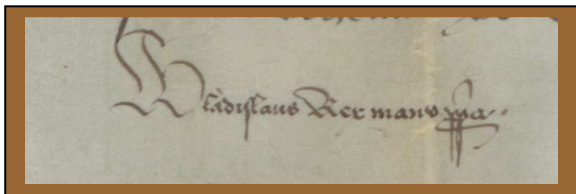 Wladislaus Rex manu ppa